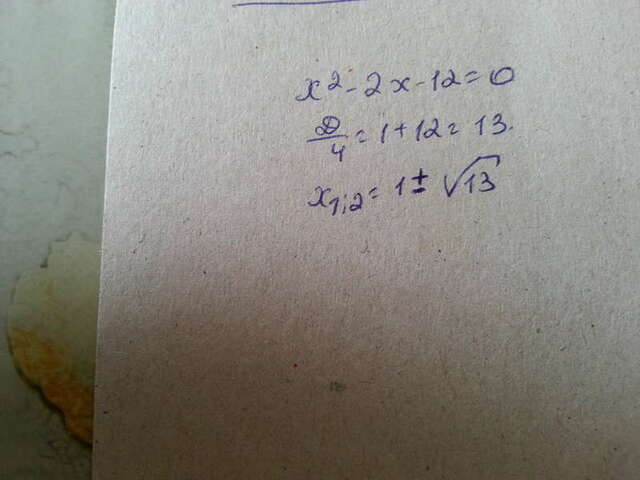 x² - 2x - 12 = 0
D/4 = 1 + 12 = 13.
x₁;₂ = 1 ± √13